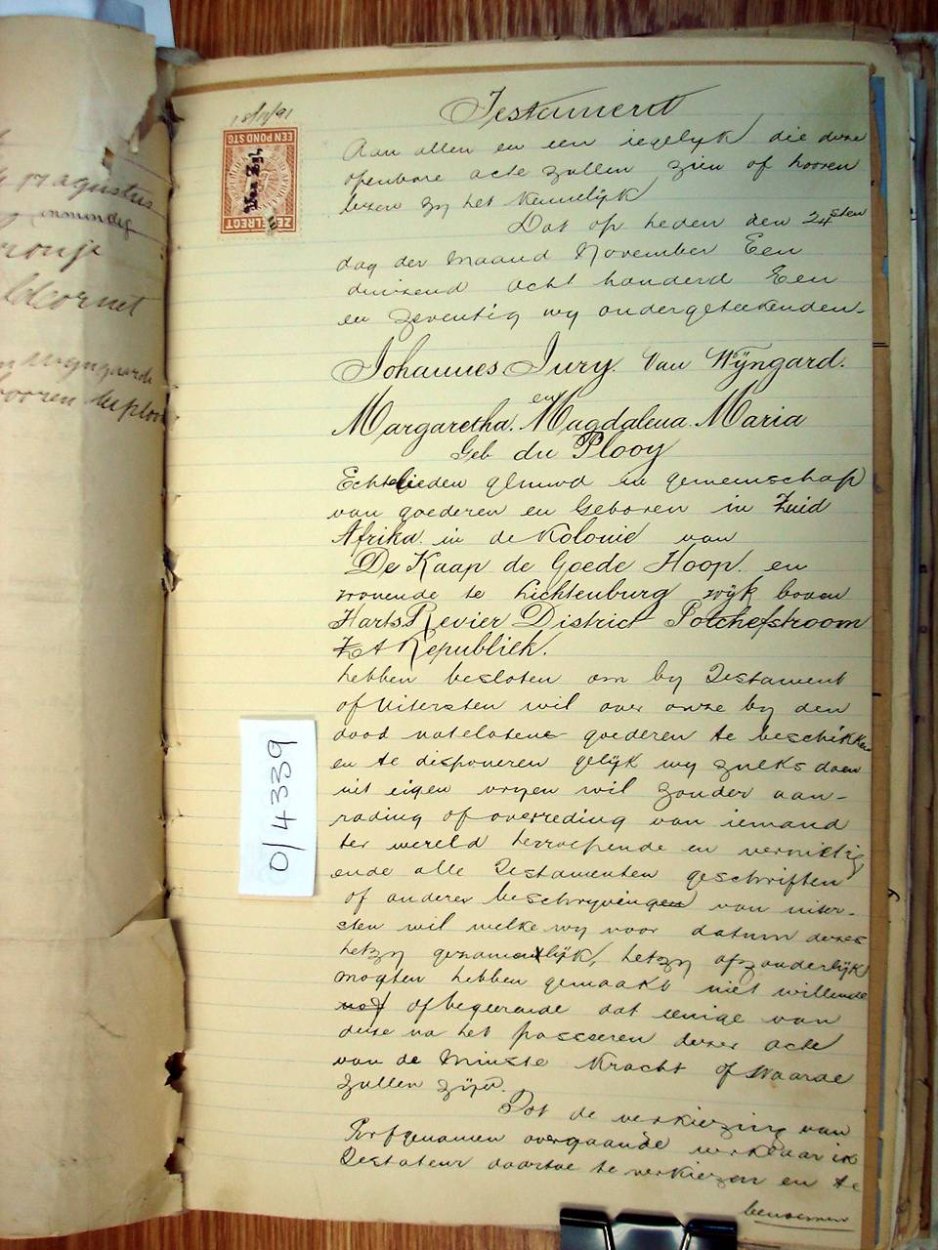 17 agustus
inmindig
ronje
ldcornet
wyngaarde
18/11/91
ZEGELREGT
EEN POND STG
Testament
Aan allen en een iegelyk die deze
openbare acte zullen zien of hooren
lezen zy het kennelyk
Dat op heden den 24sten
dag der maand November Een
duizend acht honderd Een
en zeventig wy ondergeteekenden-
Johannes Jury Van Wÿngard.
en
Margaretha. Magdalena. Maria
Geb du Plooy
Echtelieden gehuwd in gemeenschap
van goederen en Geboren in Zuid
Afrika in de Kolonie van
De Kaap de Goede Hoop. en
wonende te Lichtenburg wyk boven
Harts Revier District Potchefstroom
ZA Republiek.
hebben besloten om by Testament
of Uitersten wil over onze by den
dood natelaten goederen te beschikken
en te disponeren gelyk wy zulks doen
uit eigen vryen wil zonder aan-
rading of overreding van iemand
ter wereld herroepende en vernietig
ende alle Testamenten geschriften
of andere beschryvingen van uiter-
sten wil welke wy voor datum dezes
hetzy gezamentlyk, hetzy afzonderlyk
mogten hebben gemaakt niet willende
nog of begeerende dat eenige van
deze na het passeeren dezer acte
van de Minste Kracht of Waarde
zullen zÿn.
Dat de verkiezing van
Erfgenamen overgaande verklaar ik
Testateur daartoe te verkiezen en te
benoemen
0/4339